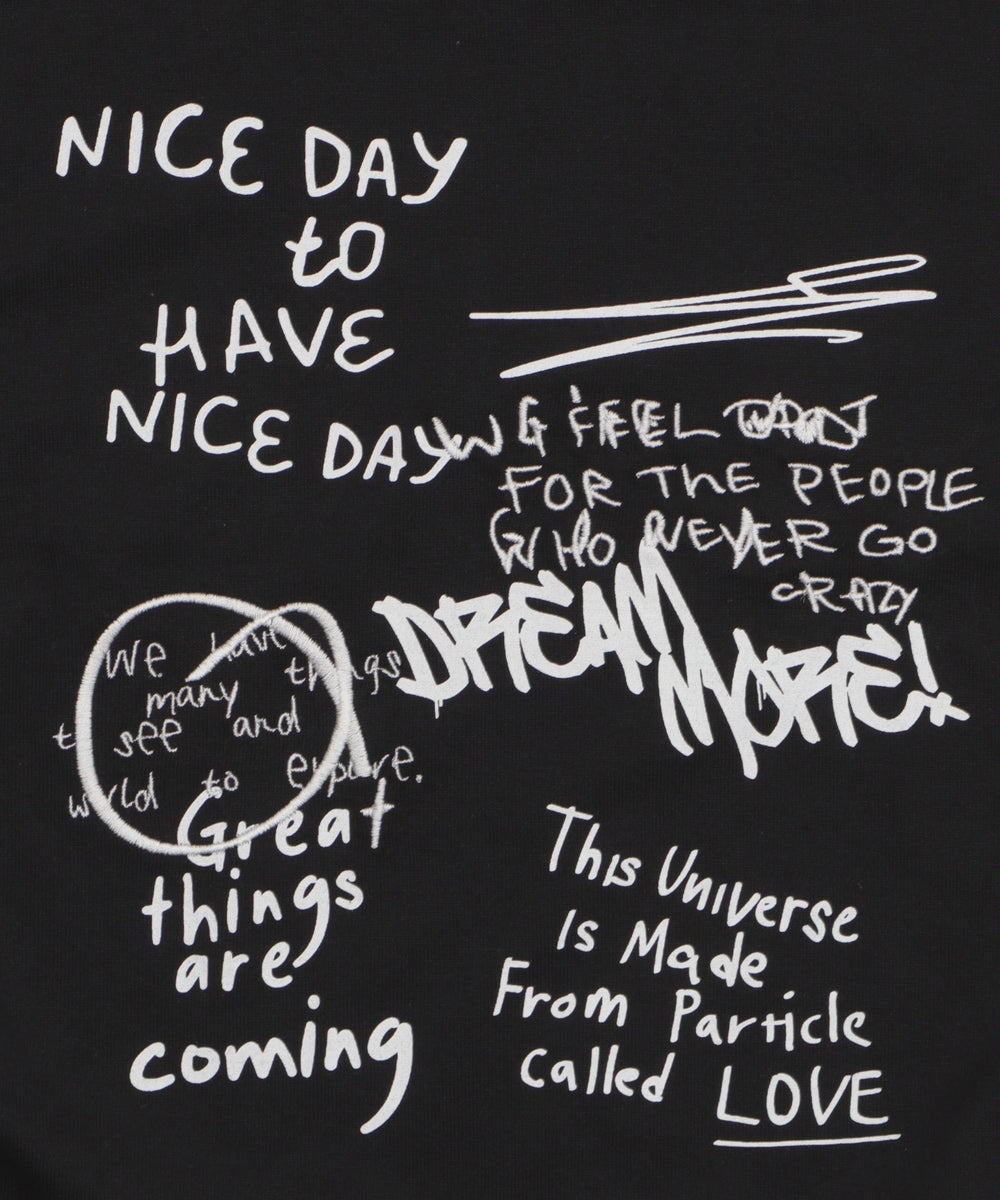 NICE DAY
to
HAVE
NICE DAY
FEEL
FOR THE PEOPLE
WHO NEVER GO
CRAZY
DREAM
MORE!
We have
many things
see and
to
Great
things
are
coming
This Universe
Is Made
From Particle
Called LOVE